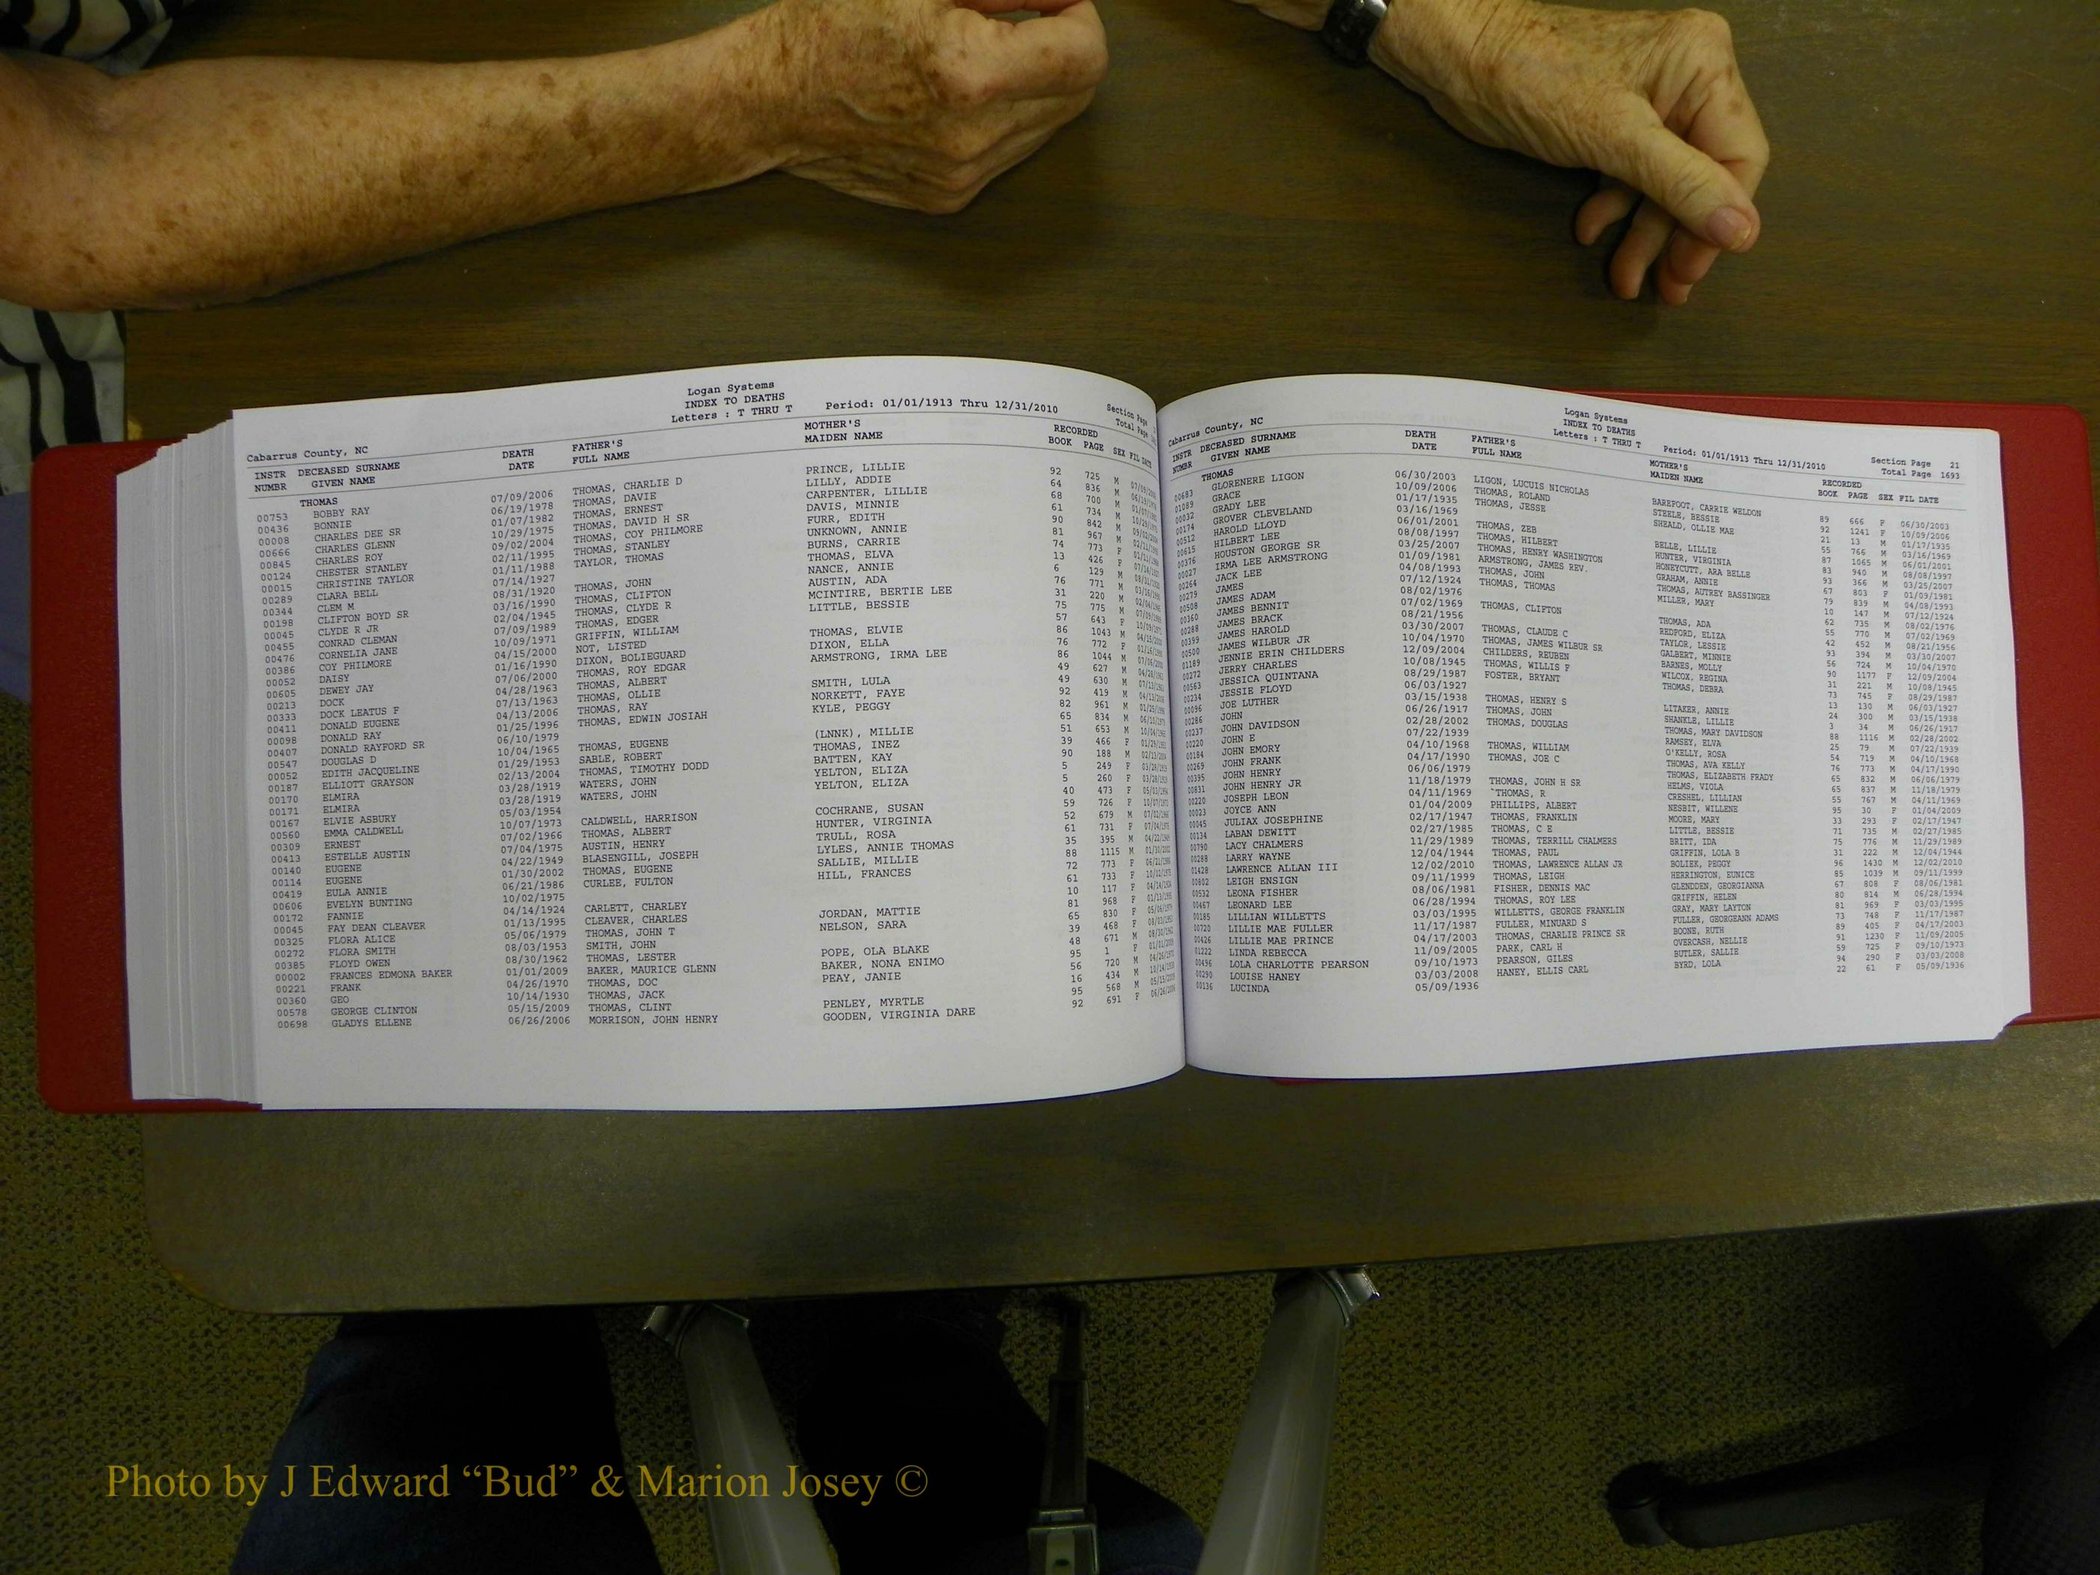 Logan Systems
INDEX TO DEATHS
Letters : T THRU T Period: 01/01/1913 Thru 12/31/2010
Section Page
Total Page
Cabarrus County, NC
INSTR DECEASED SURNAME DEATH FATHER'S MOTHER'S RECORDED
NUMBR GIVEN NAME DATE FULL NAME MAIDEN NAME BOOK PAGE SEX FIL DATE
THOMAS
00753 BOBBY RAY 07/09/2006 THOMAS, CHARLIE D PRINCE, LILLIE 92 725 M
00436 BONNIE 06/19/1978 THOMAS, DAVIE LILLY, ADDIE 64 836 M
00008 CHARLES DEE SR 01/07/1982 THOMAS, ERNEST CARPENTER, LILLIE 68 700 M
00666 CHARLES GLENN 10/29/1975 THOMAS, DAVID H SR DAVIS, MINNIE 61 734 M
00845 CHARLES ROY 09/02/2004 THOMAS, COY PHILMORE FURR, EDITH 90 842 M
00124 CHESTER STANLEY 02/11/1995 THOMAS, STANLEY UNKNOWN, ANNIE 81 967 M
00015 CHRISTINE TAYLOR 01/11/1988 TAYLOR, THOMAS BURNS, CARRIE 74 773 F
00289 CLARA BELL 07/14/1927 THOMAS, ELVA 13 426 F
00344 CLEM M 08/31/1920 THOMAS, JOHN NANCE, ANNIE 6 129 M
00198 CLIFTON BOYD SR 03/16/1990 THOMAS, CLIFTON AUSTIN, ADA 76 771 M
00045 CLYDE R JR 02/04/1945 THOMAS, CLYDE R MCINTIRE, BERTIE LEE 31 220 M
00455 CONRAD CLEMAN 07/09/1989 THOMAS, EDGER LITTLE, BESSIE 75 775 M
00476 CORNELIA JANE 10/09/1971 GRIFFIN, WILLIAM 57 643 F
00386 COY PHILMORE 04/15/2000 NOT, LISTED THOMAS, ELVIE 86 1043 M
00052 DAISY 01/16/1990 DIXON, BOLIEGUARD DIXON, ELLA 76 772 F
00605 DEWEY JAY 07/06/2000 THOMAS, ROY EDGAR ARMSTRONG, IRMA LEE 86 1044 M
00213 DOCK 04/28/1963 THOMAS, ALBERT 49 627 M
00333 DOCK LEATUS F 07/13/1963 THOMAS, OLLIE SMITH, LULA 49 630 M
00411 DONALD EUGENE 04/13/2006 THOMAS, RAY NORKETT, FAYE 92 419 M
00098 DONALD RAY 01/25/1996 THOMAS, EDWIN JOSIAH KYLE, PEGGY 82 961 M
00407 DONALD RAYFORD SR 06/10/1979 65 834 M
00547 DOUGLAS D 10/04/1965 THOMAS, EUGENE (LNNK), MILLIE 51 653 M
00052 EDITH JACQUELINE 01/29/1953 SABLE, ROBERT THOMAS, INEZ 39 466 F
00187 ELLIOTT GRAYSON 02/13/2004 THOMAS, TIMOTHY DODD BATTEN, KAY 90 188 M
00170 ELMIRA 03/28/1919 WATERS, JOHN YELTON, ELIZA 5 249 F
00171 ELMIRA 03/28/1919 WATERS, JOHN YELTON, ELIZA 5 260 F
00167 ELVIE ASBURY 05/03/1954 40 473 F
00560 EMMA CALDWELL 10/07/1973 CALDWELL, HARRISON COCHRANE, SUSAN 59 726 F
00309 ERNEST 07/02/1966 THOMAS, ALBERT HUNTER, VIRGINIA 52 679 M
00413 ESTELLE AUSTIN 07/04/1975 AUSTIN, HENRY TRULL, ROSA 61 731 F
00140 EUGENE 04/22/1949 BLASENGILL, JOSEPH LYLES, ANNIE THOMAS 35 395 M
00114 EUGENE 01/30/2002 THOMAS, EUGENE SALLIE, MILLIE 88 1115 M
00419 EULA ANNIE 06/21/1986 CURLEE, FULTON HILL, FRANCES 72 773 F
00606 EVELYN BUNTING 10/02/1975 61 733 F
00172 FANNIE 04/14/1924 CARLETT, CHARLEY 10 117 F
00045 FAY DEAN CLEAVER 01/13/1995 CLEAVER, CHARLES JORDAN, MATTIE 81 968 F
00325 FLORA ALICE 05/06/1979 THOMAS, JOHN T NELSON, SARA 65 830 F
00272 FLORA SMITH 08/03/1953 SMITH, JOHN 39 468 F
00385 FLOYD OWEN 08/30/1962 THOMAS, LESTER POPE, OLA BLAKE 48 671 M
00002 FRANCES EDMONA BAKER 01/01/2009 BAKER, MAURICE GLENN BAKER, NONA ENIMO 95 1 F
00221 FRANK 04/26/1970 THOMAS, DOC PEAY, JANIE 56 720 M
00360 GEO 10/14/1930 THOMAS, JACK 16 434 M
00578 GEORGE CLINTON 05/15/2009 THOMAS, CLINT PENLEY, MYRTLE 95 568 M
00698 GLADYS ELLENE 06/26/2006 MORRISON, JOHN HENRY GOODEN, VIRGINIA DARE 92 691 F
Logan Systems
INDEX TO DEATHS
Letters : T THRU T Period: 01/01/1913 Thru 12/31/2010
Section Page 21
Total Page 1693
Cabarrus County, NC
INSTR DECEASED SURNAME DEATH FATHER'S MOTHER'S RECORDED
NUMBR GIVEN NAME DATE FULL NAME MAIDEN NAME BOOK PAGE SEX FIL DATE
THOMAS
00683 GLORENERE LIGON 06/30/2003 LIGON, LUCUIS NICHOLAS BAREFOOT, CARRIE WELDON 89 666 F 06/30/2003
01089 GRACE 10/09/2006 THOMAS, ROLAND STEELE, BESSIE 92 1241 F 10/09/2006
00032 GRADY LEE 01/17/1935 THOMAS, JESSE SHEALD, OLLIE MAE 21 13 M 01/17/1935
00174 GROVER CLEVELAND 03/16/1969 55 766 M 03/16/1969
00512 HAROLD LLOYD 06/01/2001 THOMAS, ZEB BELLE, LILLIE 87 1065 M 06/01/2001
00615 HILBERT LEE 08/08/1997 THOMAS, HILBERT HUNTER, VIRGINIA 83 940 M 08/08/1997
00376 HOUSTON GEORGE SR 03/25/2007 THOMAS, HENRY WASHINGTON HONEYCUTT, ARA BELLE 93 366 M 03/25/2007
00027 IRMA LEE ARMSTRONG 01/09/1981 ARMSTRONG, JAMES REV. GRAHAM, ANNIE 67 803 F 01/09/1981
00264 JACK LEE 04/08/1993 THOMAS, JOHN THOMAS, AUTREY BASSINGER 79 839 M 04/08/1993
00279 JAMES 07/12/1924 THOMAS, THOMAS MILLER, MARY 10 147 M 07/12/1924
00508 JAMES ADAM 08/02/1976 62 735 M 08/02/1976
00360 JAMES BENNIT 07/02/1969 THOMAS, CLIFTON THOMAS, ADA 55 770 M 07/02/1969
00288 JAMES BRACK 08/21/1956 REDFORD, ELIZA 42 452 M 08/21/1956
00399 JAMES HAROLD 03/30/2007 THOMAS, CLAUDE C TAYLOR, LESSIE 93 394 M 03/30/2007
00500 JAMES WILBUR JR 10/04/1970 THOMAS, JAMES WILBUR SR GALBERT, MINNIE 56 724 M 10/04/1970
01189 JENNIE ERIN CHILDERS 12/09/2004 CHILDERS, REUBEN BARNES, MOLLY 90 1177 F 12/09/2004
00272 JERRY CHARLES 10/08/1945 THOMAS, WILLIS F WILCOX, REGINA 31 221 M 10/08/1945
00563 JESSICA QUINTANA 08/29/1987 FOSTER, BRYANT THOMAS, DEBRA 73 745 F 08/29/1987
00234 JESSIE FLOYD 06/03/1927 13 130 M 06/03/1927
00096 JOE LUTHER 03/15/1938 THOMAS, HENRY S LITAKER, ANNIE 24 300 M 03/15/1938
00286 JOHN 06/26/1917 THOMAS, JOHN SHANKLE, LILLIE 3 34 M 06/26/1917
00237 JOHN DAVIDSON 02/28/2002 THOMAS, DOUGLAS THOMAS, MARY DAVIDSON 88 1116 M 02/28/2002
00220 JOHN E 07/22/1939 RAMSEY, ELVA 25 79 M 07/22/1939
00184 JOHN EMORY 04/10/1968 THOMAS, WILLIAM O'KELLY, ROSA 54 719 M 04/10/1968
00269 JOHN FRANK 04/17/1990 THOMAS, JOE C THOMAS, AVA KELLY 76 773 M 04/17/1990
00395 JOHN HENRY 06/06/1979 THOMAS, ELIZABETH FRADY 65 832 M 06/06/1979
00831 JOHN HENRY JR 11/18/1979 THOMAS, JOHN H SR HELMS, VIOLA 65 837 M 11/18/1979
00220 JOSEPH LEON 04/11/1969 `THOMAS, R CRESHEL, LILLIAN 55 767 M 04/11/1969
00023 JOYCE ANN 01/04/2009 PHILLIPS, ALBERT NESBIT, WILLENE 95 30 F 01/04/2009
00045 JULIAX JOSEPHINE 02/17/1947 THOMAS, FRANKLIN MOORE, MARY 33 293 F 02/17/1947
00134 LABAN DEWITT 02/27/1985 THOMAS, C E LITTLE, BESSIE 71 735 M 02/27/1985
00790 LACY CHALMERS 11/29/1989 THOMAS, TERRILL CHALMERS BRITT, IDA 75 776 M 11/29/1989
00288 LARRY WAYNE 12/04/1944 THOMAS, PAUL GRIFFIN, LOLA B 31 222 M 12/04/1944
01428 LAWRENCE ALLAN III 12/02/2010 THOMAS, LAWRENCE ALLAN JR BOLIEK, PEGGY 96 1430 M 12/02/2010
00802 LEIGH ENSIGN 09/11/1999 THOMAS, LEIGH HERRINGTON, EUNICE 85 1039 M 09/11/1999
00532 LEONA FISHER 08/06/1981 FISHER, DENNIS MAC GLENDDEN, GEORGIANNA 67 808 F 08/06/1981
00467 LEONARD LEE 06/28/1994 THOMAS, ROY LEE GRIFFIN, HELEN 80 814 M 06/28/1994
00185 LILLIAN WILLETTS 03/03/1995 WILLETTS, GEORGE FRANKLIN GRAY, MARY LAYTON 81 969 F 03/03/1995
00720 LILLIE MAE FULLER 11/17/1987 FULLER, MINUARD S FULLER, GEORGEANN ADAMS 73 748 F 11/17/1987
00426 LILLIE MAE PRINCE 04/17/2003 THOMAS, CHARLIE PRINCE SR BOONE, RUTH 89 405 F 04/17/2003
01222 LINDA REBECCA 11/09/2005 PARK, CARL H OVERCASH, NELLIE 91 1230 F 11/09/2005
00496 LOLA CHARLOTTE PEARSON 09/10/1973 PEARSON, GILES BUTLER, SALLIE 59 725 F 09/10/1973
00290 LOUISE HANEY 03/03/2008 HANEY, ELLIS CARL BYRD, LOLA 94 290 F 03/03/2008
00136 LUCINDA 05/09/1936 22 61 F 05/09/1936
Photo by J Edward “Bud” & Marion Josey ©